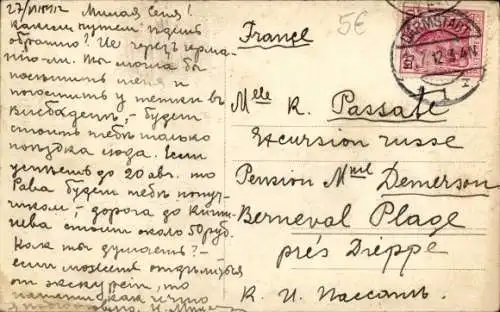 27/VII 1912 Милая Сеня!
Каким путем идешь
обратно? Не через Герма-
нию-ли. Ты могла бы
посетить меня и
погостить у тетки въ
Висбаденѣ, – будет
стоить тебѣ только
поѣздка сюда. Если
успѣешь до 20 авг. то
Рава будет тебѣ попут-
чиком, – дорога до Киши-
нева стоит около 50 руб.
Как ты думаешь? –
если можешь отдѣлиться
от экскурсіи, то
France
5€
DARMSTADT
7.12.3-4N.
Melle K. Passate
Excursion russe
Pension Mme Demerson
Berneval Plage
près Dieppe
К. И. Пассатъ.